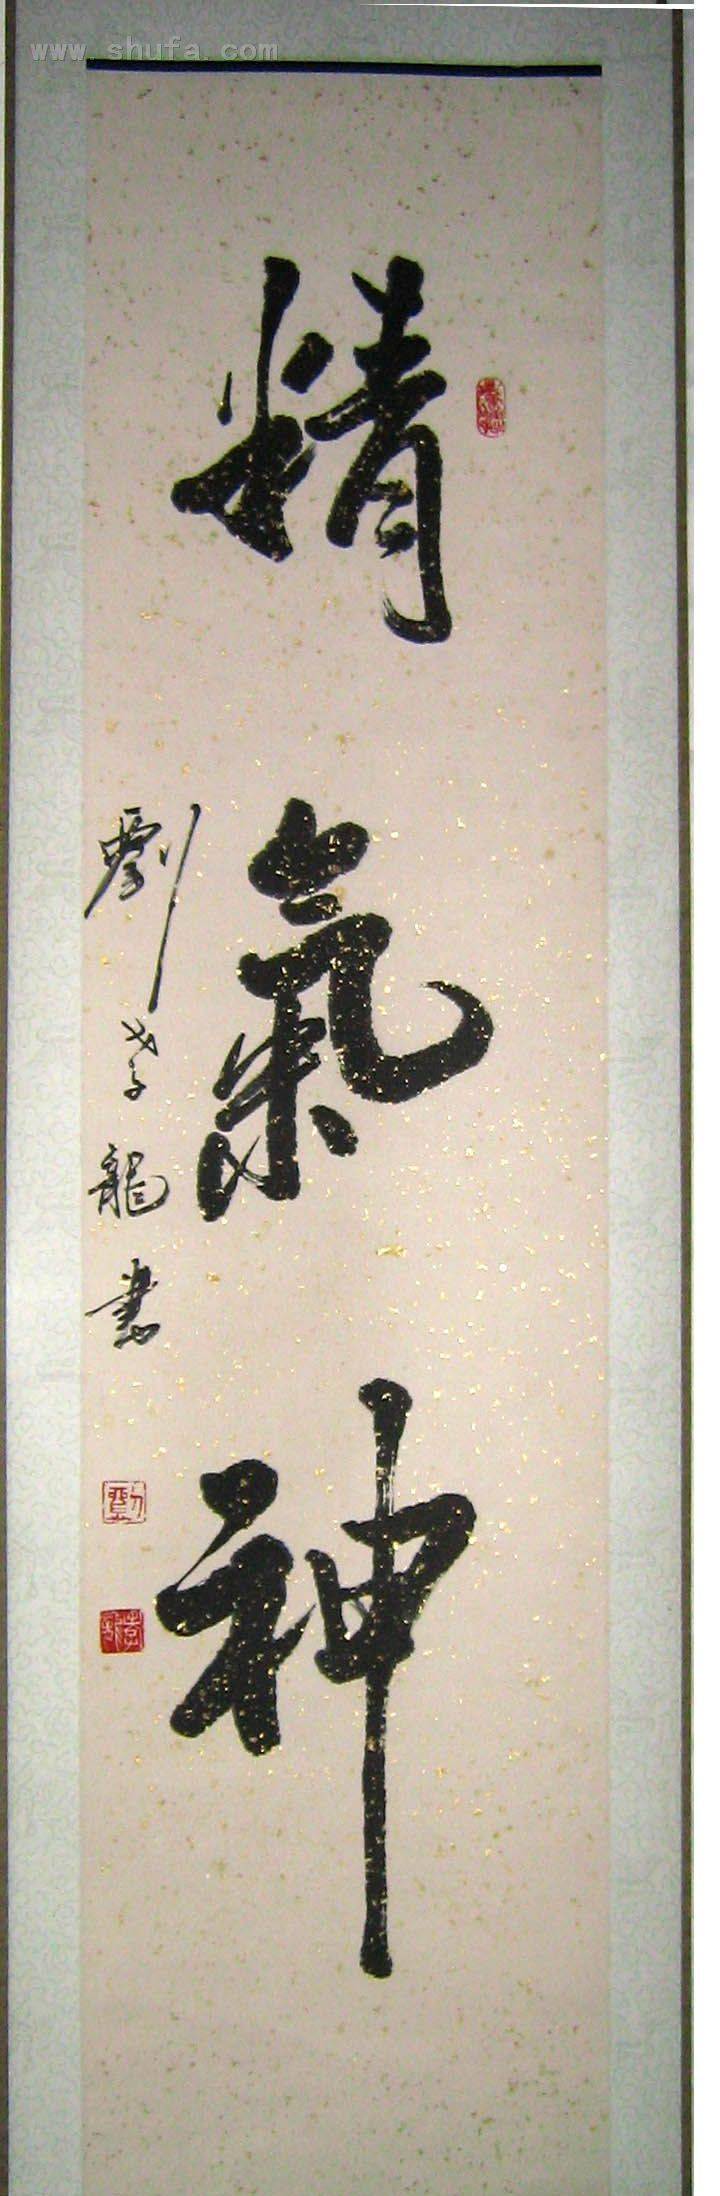 www.shufa.com
精氣神
劉孝龍書